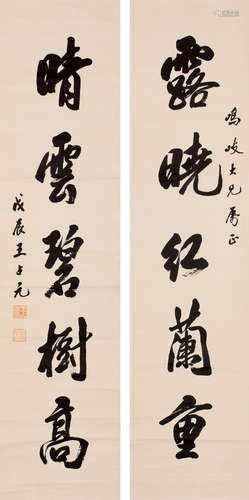 鳴岐大兄屬正
露曉红蘭重
晴雲碧樹高
戊辰王占元